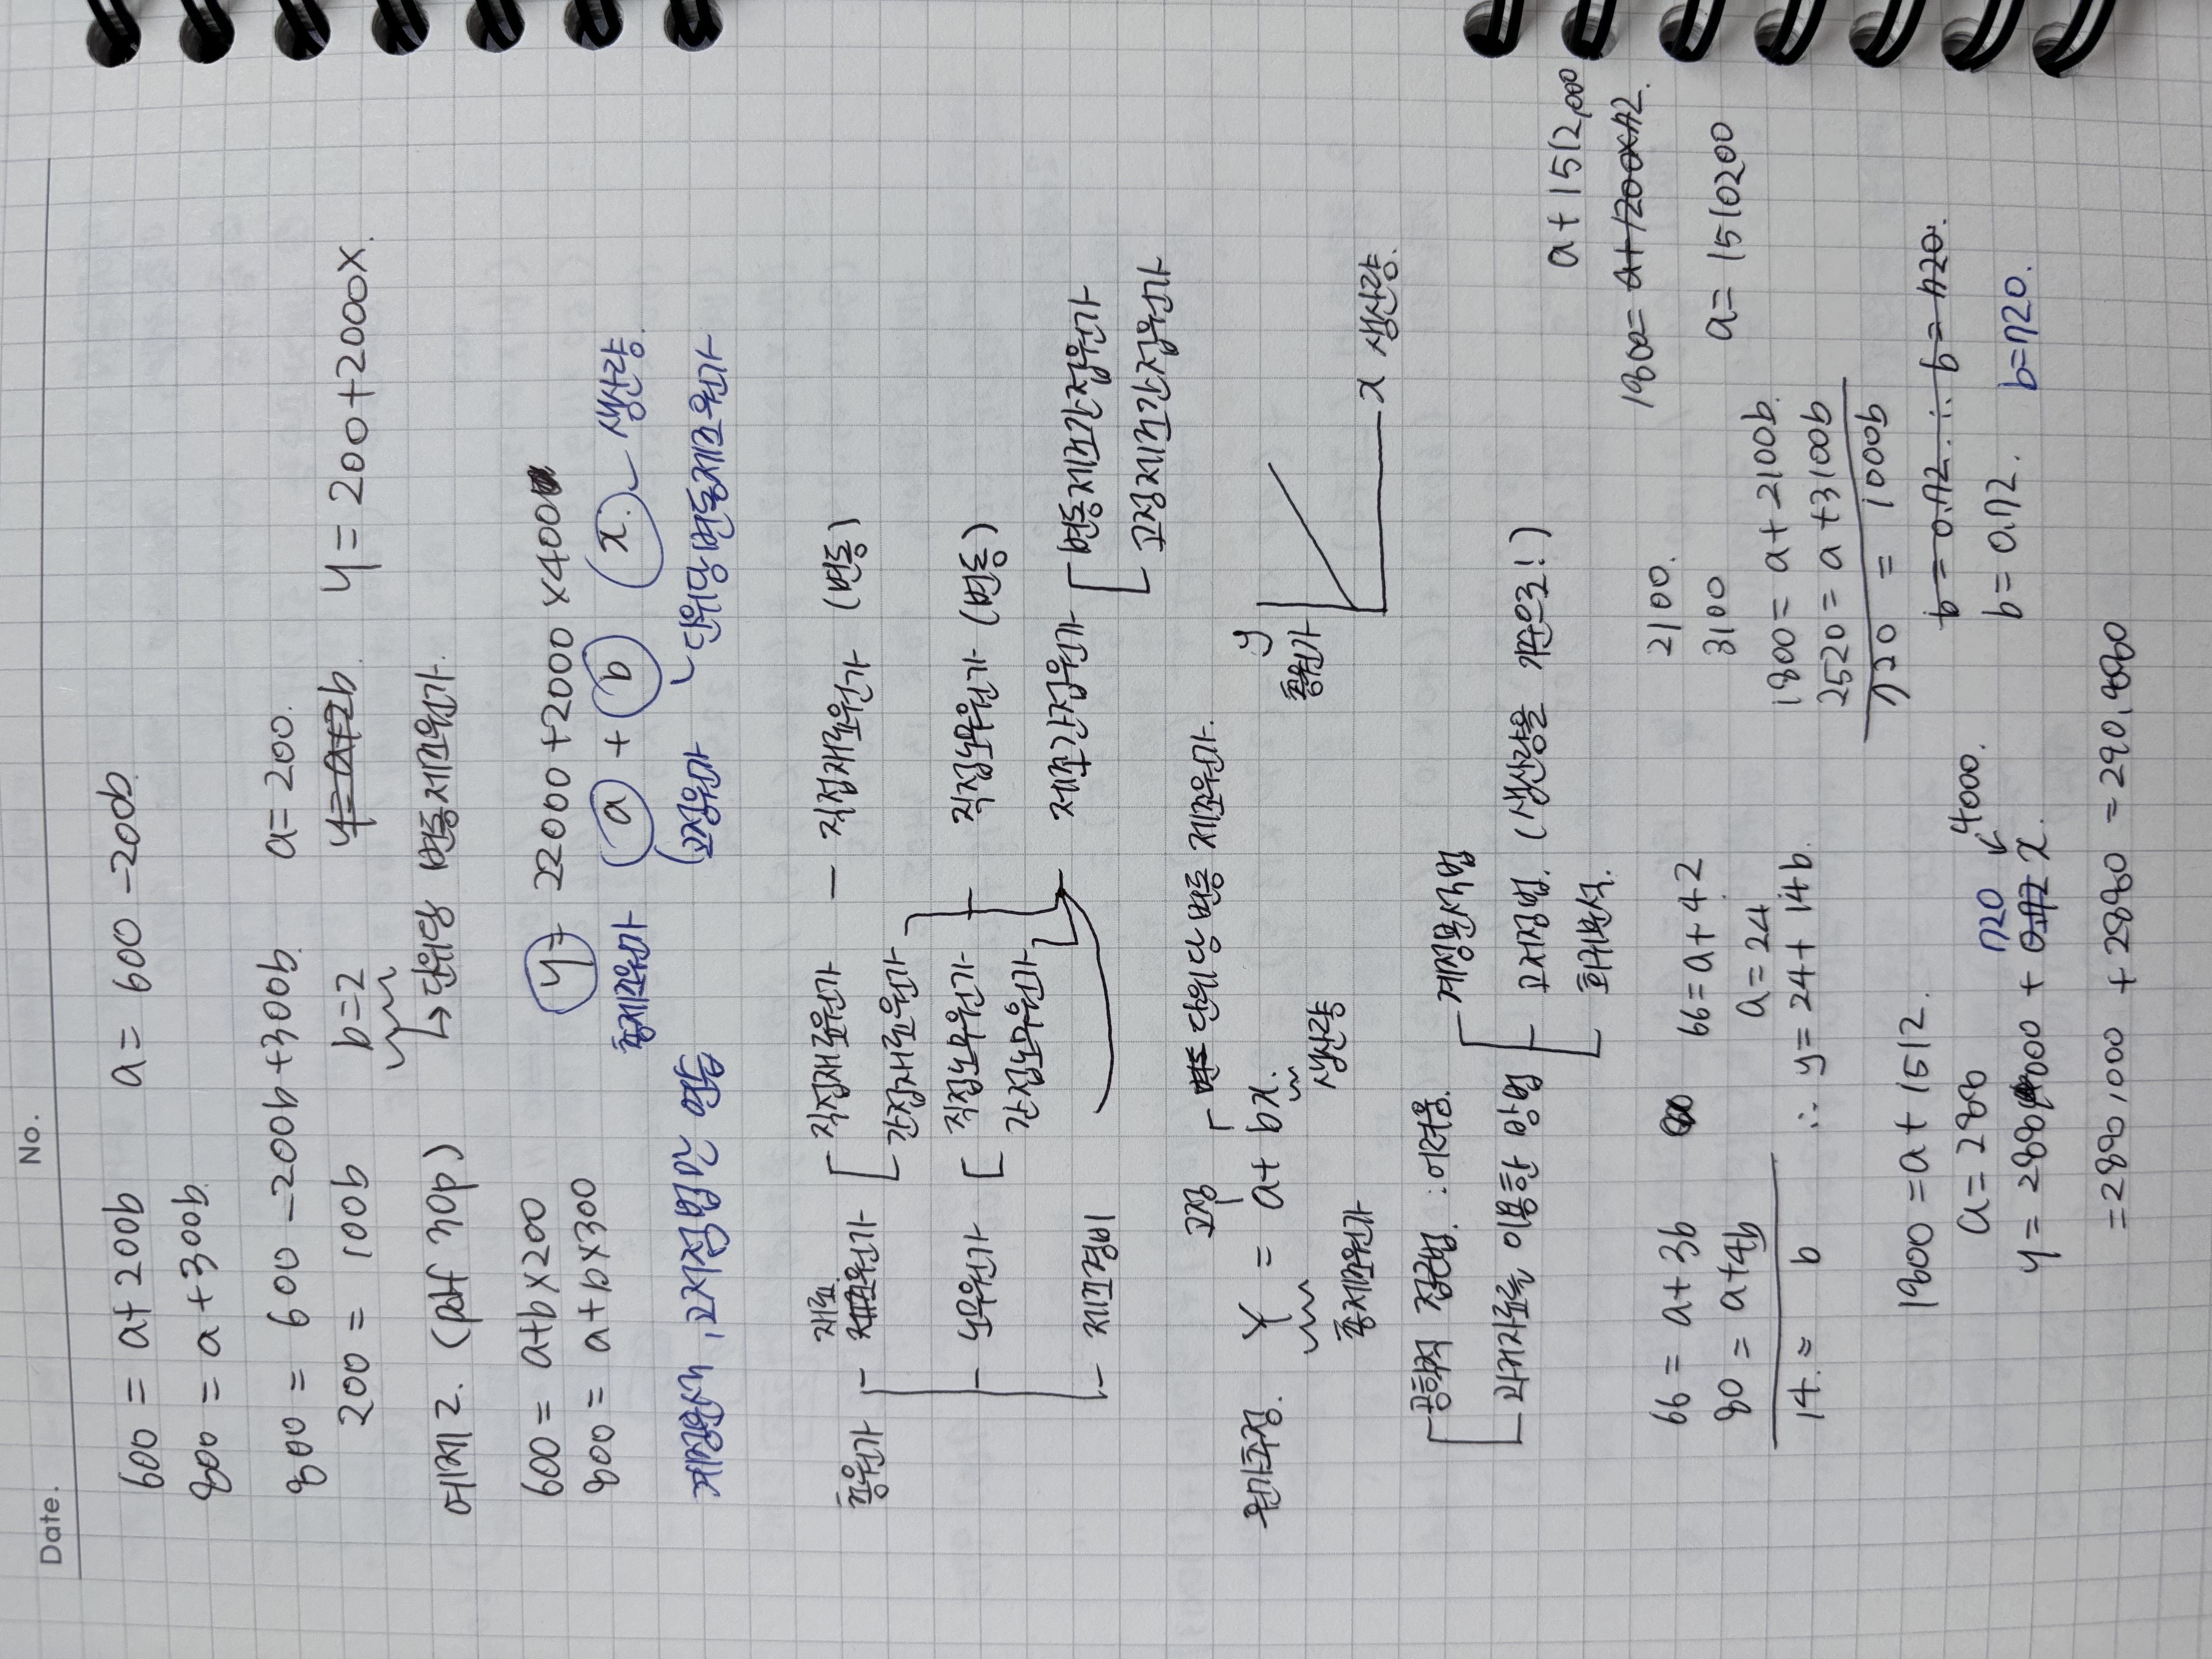 Date.
No.
600 = a+200b    a = 600 -200b.
800 = a+300b.
800 = 600 -200b+300b.    a= 200.
200 = 100b    b=2    y= a+2b.    y= 200+2000x.
→ 단위당 변동제조원가.
예제2. (pdf 30p)
600 = a+b×200    y= 22000+2000 ×400
800 = a+b×300
총제조원가    a + b    x. 생산량.
계정분석, 고저점법만 연습    고정원가    단위당변동제조원가
재료
총원가 제조원가 직접재료원가 — 직접재료원가 (변동)
간접재료원가
노무원가 직접노무원가 — 직접노무원가 (변동)
간접노무원가
제조경비    제조간접원가    변동제조간접원가
고정제조간접원가
고정    변동 단위당 변동 제조원가.
원가추정.    Y = a+ bx.    y
생산량    총원가
총제조원가    x 생산량.
공학적 접근법. : 어려움.
과거자료를 이용한 방법    계정분석법
고저점법. (생산량을 기준으로!)
회귀분석.
66 = a+ 3b    66=a+42
80 = a+4b    a=24
14. = b    ∴ y=24+ 14b.
2100.
3100
1800= a+2100b.
2520= a+3100b
720 = 1000b
b = 0.72. ∴ b= 720.
b= 0.72.    b=720.
a+1512,000
1800= a+1200×72.
a= 1510200
1800 =a+ 1512.
a= 288
720    4000.
y= 288,000 + 0.72 x.
=288,000 +2880 =290,880